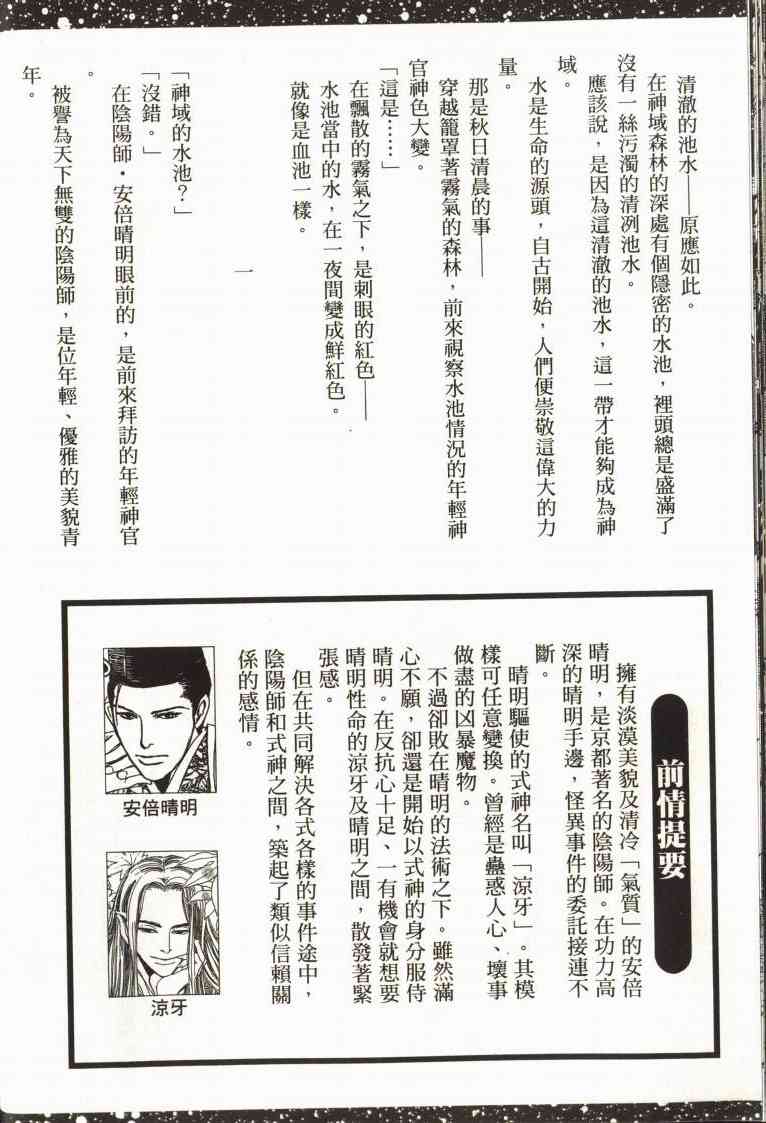 清澈的池水——原應如此。
在神域森林的深處有個隱密的水池，裡頭總是盛滿了
沒有一絲污濁的清冽池水。
應該說，是因為這清澈的池水，這一帶才能夠成為神
域。
水是生命的源頭，自古開始，人們便崇敬這偉大的力
量。
那是秋日清晨的事——
穿越籠罩著霧氣的森林，前來視察水池情況的年輕神
官神色大變。
「這是……」
在飄散的霧氣之下，是刺眼的紅色——
水池當中的水，在一夜間變成鮮紅色。
就像是血池一樣。
一
「神域的水池？」
「沒錯。」
在陰陽師・安倍晴明眼前的，是前來拜訪的年輕神官
。
被譽為天下無雙的陰陽師，是位年輕、優雅的美貌青
年。
前情提要
擁有淡漠美貌及清冷「氣質」的安倍
晴明，是京都著名的陰陽師。在功力高
深的晴明手邊，怪異事件的委託接連不
斷。
晴明驅使的式神名叫「涼牙」。其模
樣可任意變換。曾經是蠱惑人心、壞事
做盡的凶暴魔物。
不過卻敗在晴明的法術之下。雖然滿
心不願，卻還是開始以式神的身分服侍
晴明。在反抗心十足、一有機會就想要
晴明性命的涼牙及晴明之間，散發著緊
張感。
但在共同解決各式各樣的事件途中，
陰陽師和式神之間，築起了類似信賴關
係的感情。
安倍晴明
涼牙